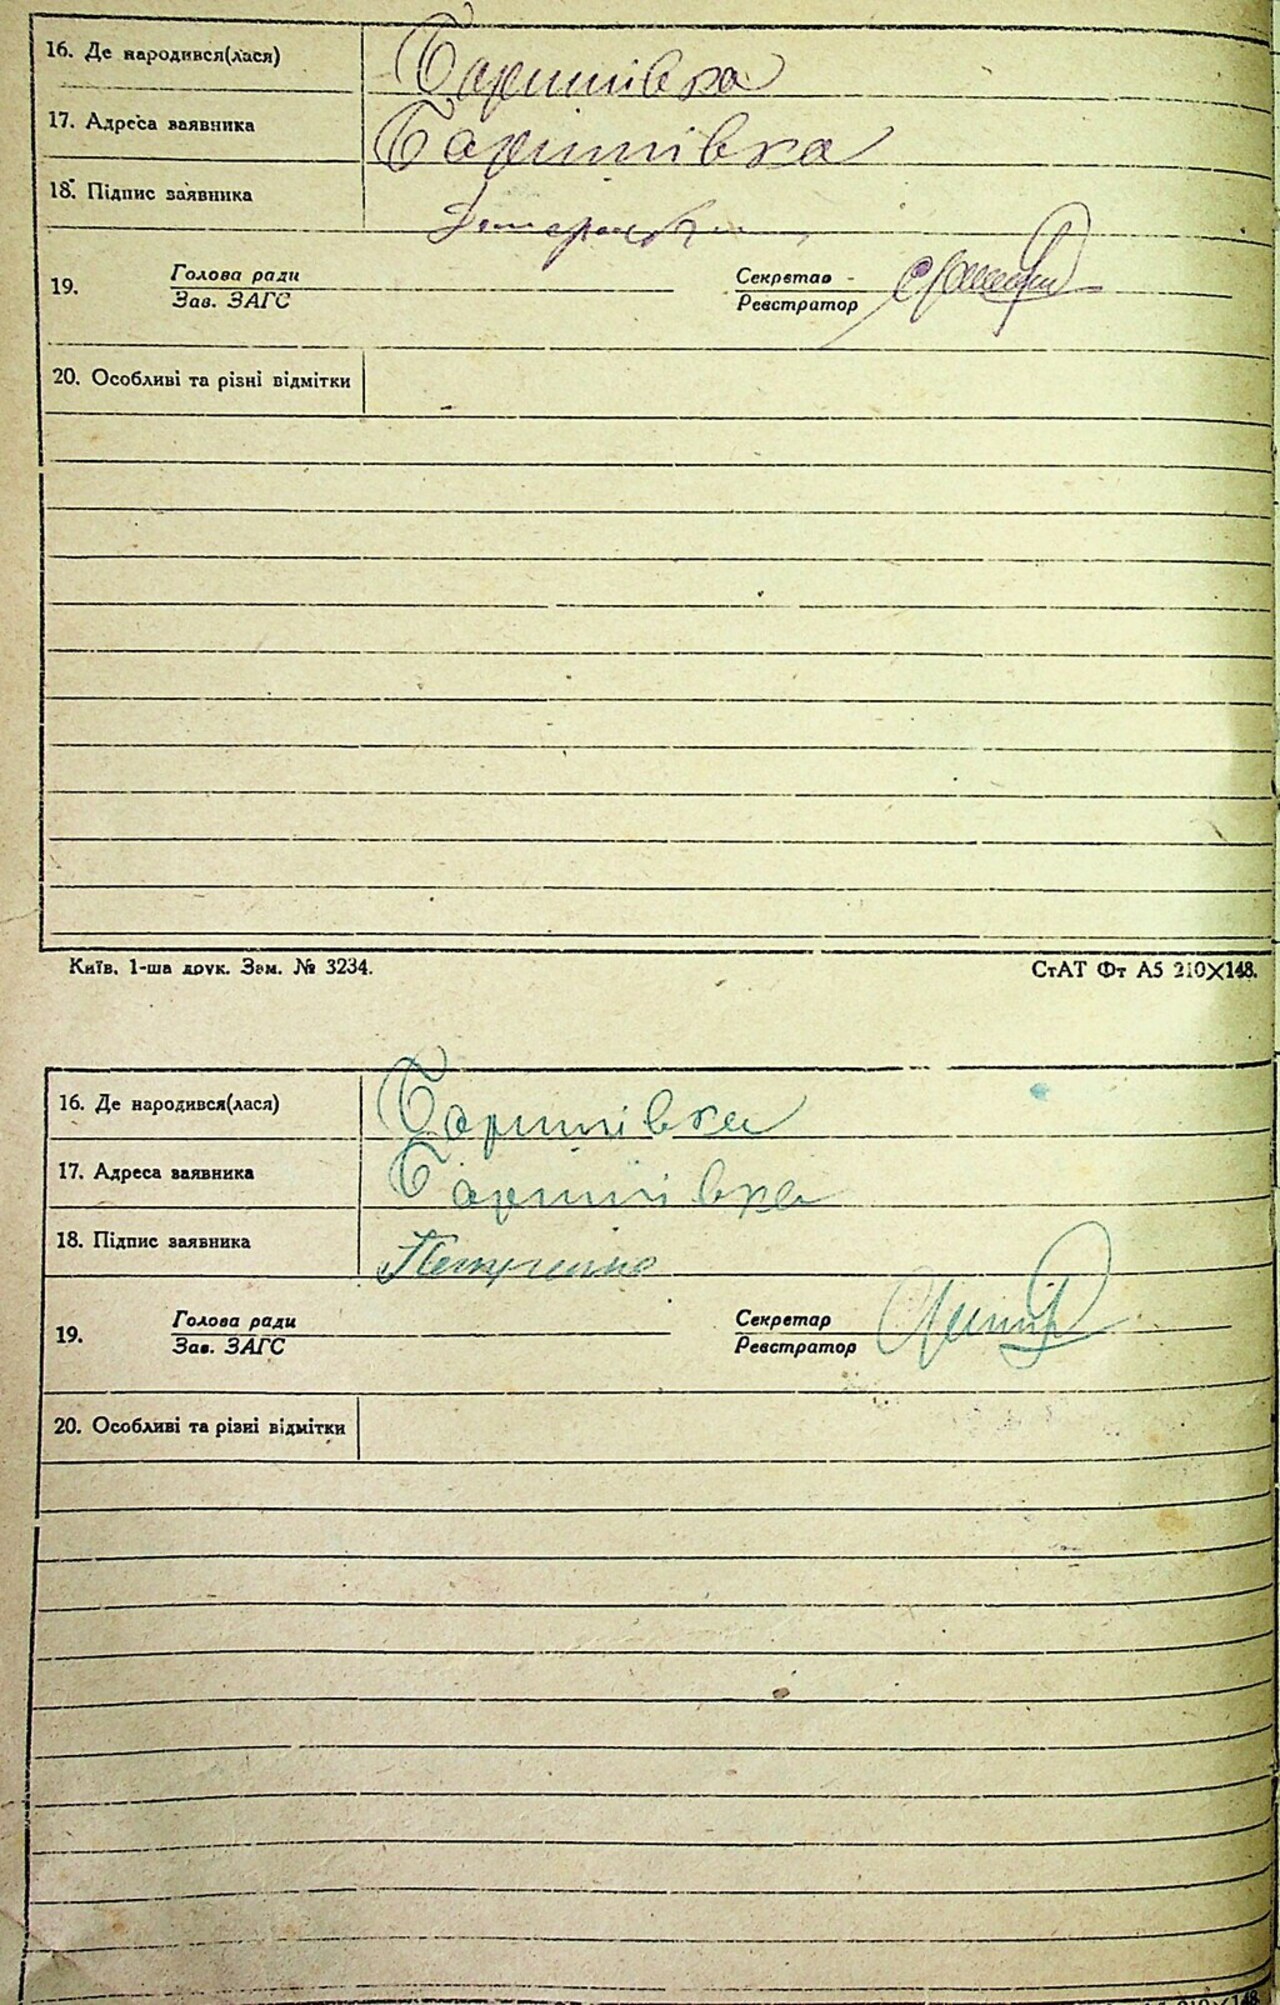 16. Де народився(лася) Баришівка
17. Адреса заявника Баришівка
18. Підпис заявника
Голова ради Секретар
19.
Зав. ЗАГС Реєстратор
20. Особливі та різні відмітки
Київ. 1-ша друк. Зам. № 3234. СтАТ Фт А5 210×148.
16. Де народився(лася) Баришівка
17. Адреса заявника Баришівка
18. Підпис заявника
Голова ради Секретар
19.
Зав. ЗАГС Реєстратор
20. Особливі та різні відмітки